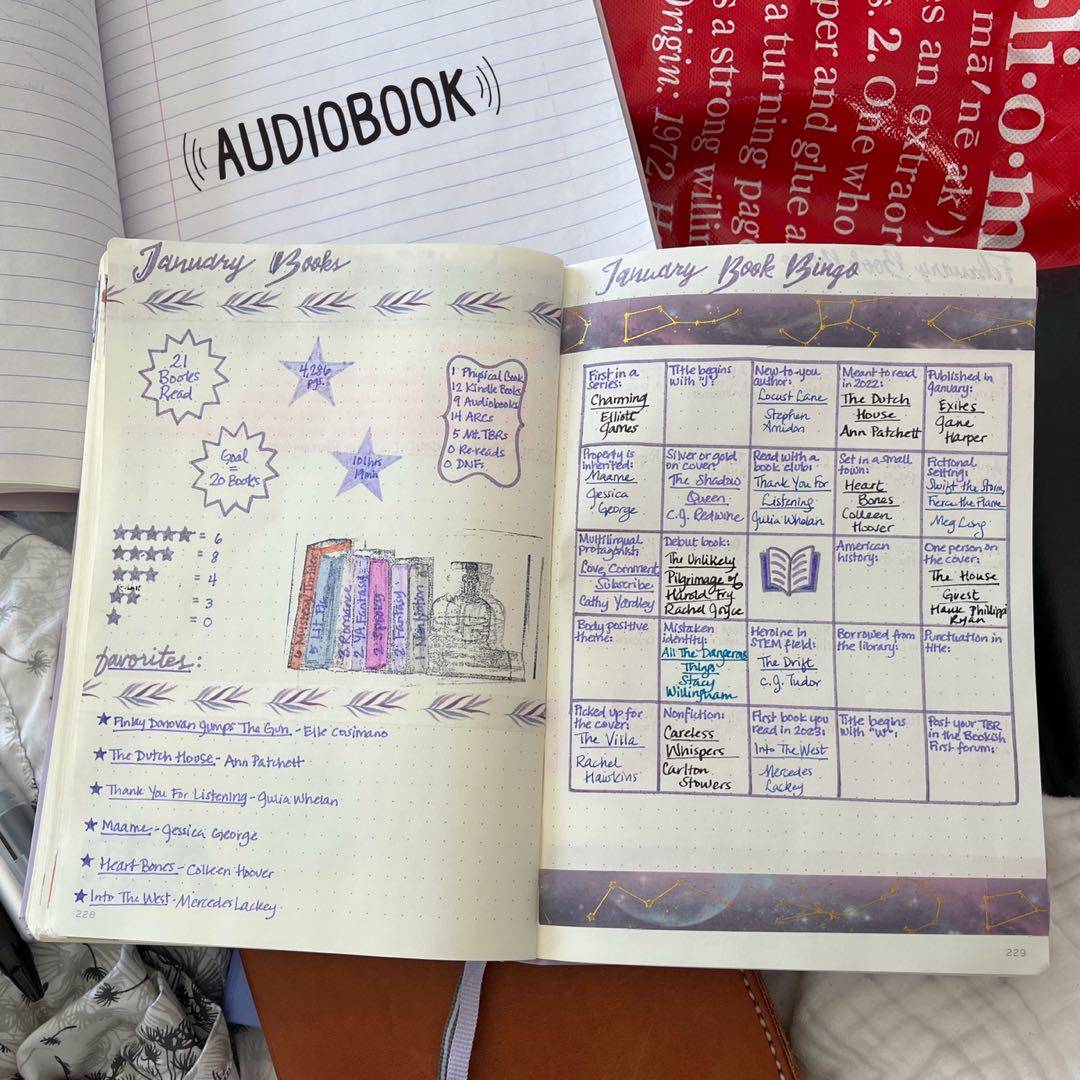 ((( AUDIOBOOK )))
li·o·m
mā'nē ak'),
ss an extraor
s. 2. One who
per and glue a
a turning page
s a strong willin
Origin: 1972
January Books
21
Books
Read
4,286
pgs.
1 Physical Book
12 Kindle Books
9 Audiobooks
14 ARCs
5 Mt. TBRs
0 Re-reads
0 DNFs
Goal
=
20 Books
101hrs
19min
= 6
= 8
= 4
= 3
= 0
5 Lit Fic
3 Romance
2 YA Fantasy
2 Spooky
2 Fantasy
favorites:
Finky Donovan Jumps The Gun. - Elle Cosimano
The Dutch House - Ann Patchett
Thank You For Listening - Julia Whelan
Maame - Jessica George
Heart Bones - Colleen Hoover
Into The West - Mercedes Lackey
228
January Book Bingo
First in a
series:
Charming
Elliott
James
Title begins
with "J":
New-to-you
author:
Locust Lane
Stephen
Amidon
Meant to read
in 2022:
The Dutch
House
Ann Patchett
Published in
January:
Exiles
Jane
Harper
Property is
inherited:
Maame
Jessica
George
Silver or gold
on cover:
The Shadow
Queen
C.J. Redwine
Read with a
book club:
Thank You For
Listening
Julia Whelan
Set in a small
town:
Heart
Bones
Colleen
Hoover
Fictional
setting:
Swift the Storm,
Fierce the Flame
Meg Long
Multilingual
protagonist:
Love, Comment
Subscribe
Cathy Yardley
Debut book:
The Unlikely
Pilgrimage of
Harold Fry
Rachel Joyce
American
history:
One person on
the cover:
The House
Guest
Hank Phillippi
Ryan
Body positive
theme:
Mistaken
identity:
All The Dangerous
Things
Stacy
Willingham
Heroine in
STEM field:
The Drift
C.J. Tudor
Borrowed from
the library:
Punctuation in
title:
Picked up for
the cover:
The Villa
Rachel
Hawkins
Nonfiction:
Careless
Whispers
Carlton
Stowers
First book you
read in 2023:
Into The West
Mercedes
Lackey
Title begins
with "W":
Post your TBR
in the Bookish
First forum:
229